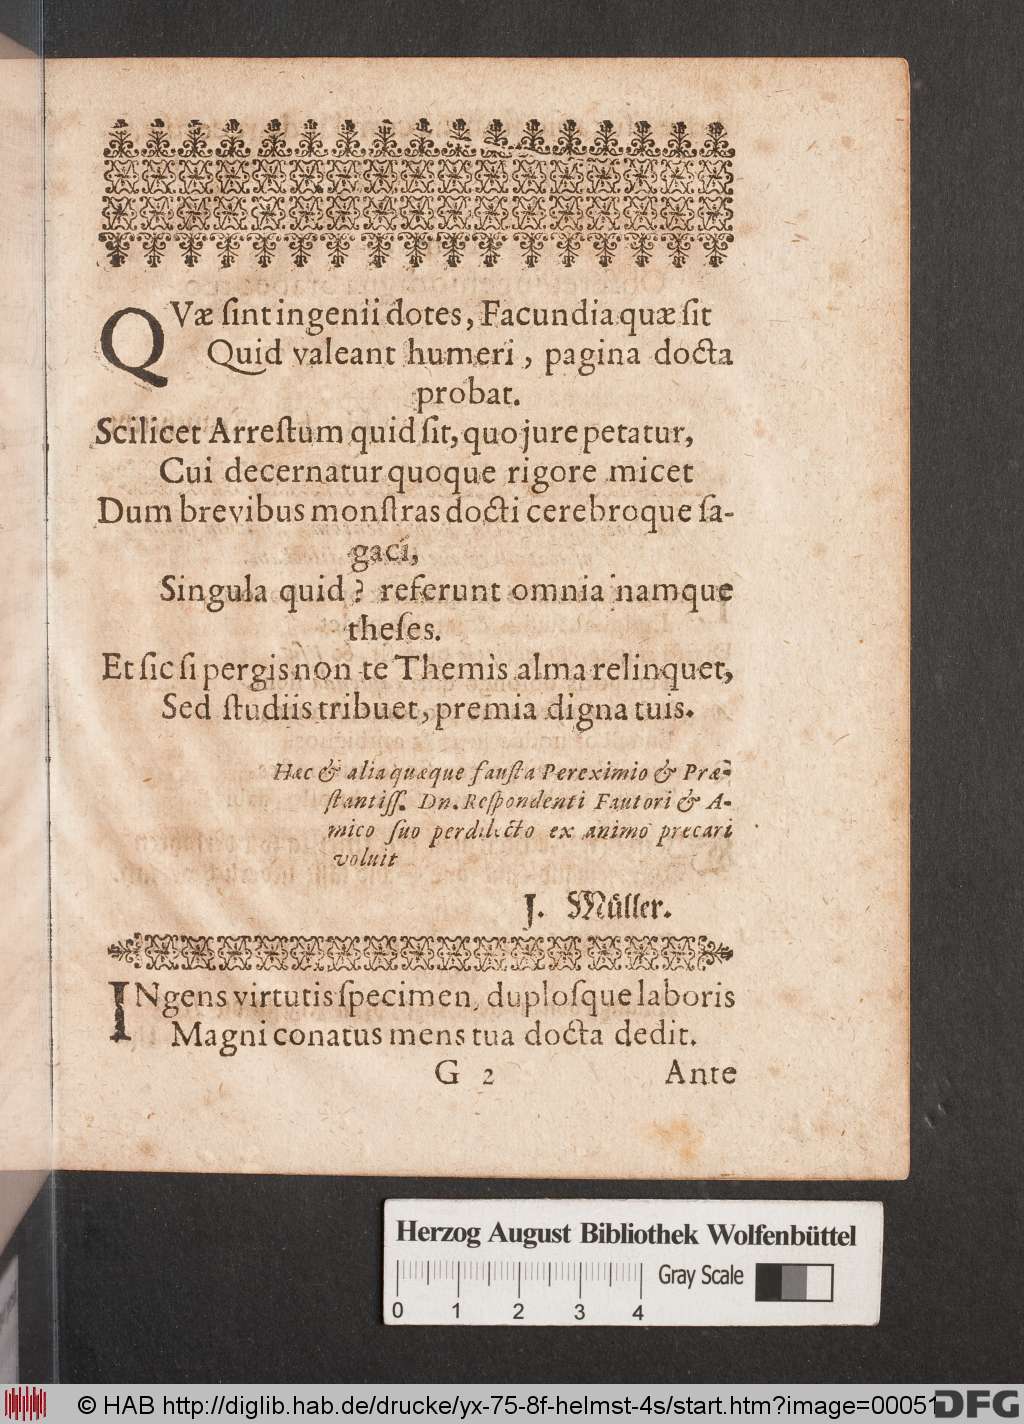 QVæ ſint ingenii dotes, Facundia quæ ſit
Quid valeant humeri, pagina docta
probat.
Scilicet Arreſtum quid ſit, quo jure petatur,
Cui decernatur quoque rigore micet
Dum brevibus monſtras docti cerebroque ſa-
gaci,
Singula quid? referunt omnia namque
theſes.
Et ſic ſi pergis non te Themis alma relinquet,
Sed ſtudiis tribuet, premia digna tuis.
Hæc & alia quæque fauſta Pereximio & Præ-
ſtantiſſ. Dn. Reſpondenti Fautori & A-
mico ſuo perdilecto ex animo precari
voluit
J. Müller.
INgens virtutis ſpecimen, duploſque laboris
Magni conatus mens tua docta dedit.
G 2 Ante
Herzog August Bibliothek Wolfenbüttel
Gray Scale
0 1 2 3 4
© HAB http://diglib.hab.de/drucke/yx-75-8f-helmst-4s/start.htm?image=00051
DFG